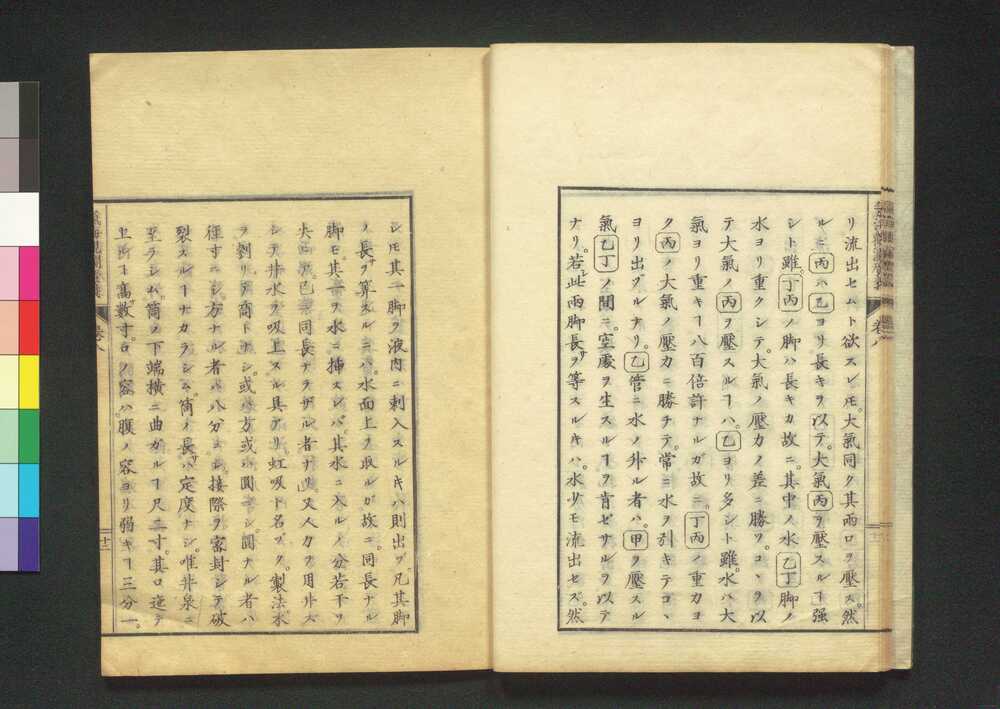 リ流出セムト欲スレ𪜈。大氣同ク其兩口ヲ壓ス。然
ルニ丙ハ乙ヨリ長キヲ以テ。大氣丙ヲ壓スルヿ强
シト雖。丁丙ノ脚ハ長キカ故ニ。其中ノ水乙丁脚ノ
水ヨリ重クシテ。大氣ノ壓力ノ差ニ勝ツ。コヽヲ以
テ大氣ノ丙ヲ壓スルヿハ。乙ヨリ多シト雖。水ハ大
氣ヨリ重キヿ八百倍許ナルガ故ニ。丁丙ノ重力ヨ
ク丙ノ大氣ノ壓力ニ勝チテ。常ニ水ヲ引キテコヽ
ヨリ出ヅルナリ。乙管ニ水ノ升ル者ハ。甲ヲ壓スル
氣乙丁ノ間ニ。空處ヲ生スルヿヲ肯ゼサルヲ以テ
ナリ。若シ此兩脚長サヲ等スルキハ。水少モ流出セズ。然
シ𪜈其一脚ヲ液内ニ刺入スルキハ則出ヅ。凡其脚
ノ長ヲ算スルニハ。水面上ヲ取ルガ故ニ。同長ナル
脚モ。其一ヲ水ニ挿スレバ。其水ニ入ルノ分若干ヲ
失フ。已ニ同長ナラザル者ナリ。又人力ヲ用井ズ
シテ井水ヲ吸上スル具アリ。虹吸ト名ヅク。製法木
ヲ刳リテ筒トナシ。或ハ方或ハ圓ニシ。圓ナル者ハ
徑寸ニシ。方ナル者ハ八分ニシ。接際ヲ密封シテ破
裂スルヿナカラシム。筒ノ長サハ定度ナシ。唯井泉ニ
至ラシム。筒ノ下端橫ニ曲カルヿ尺二寸。其口迤テ
上向ヿ高數寸。口ノ容ハ。腹ノ容ヨリ弱キヿ三分一。
卷八
十二